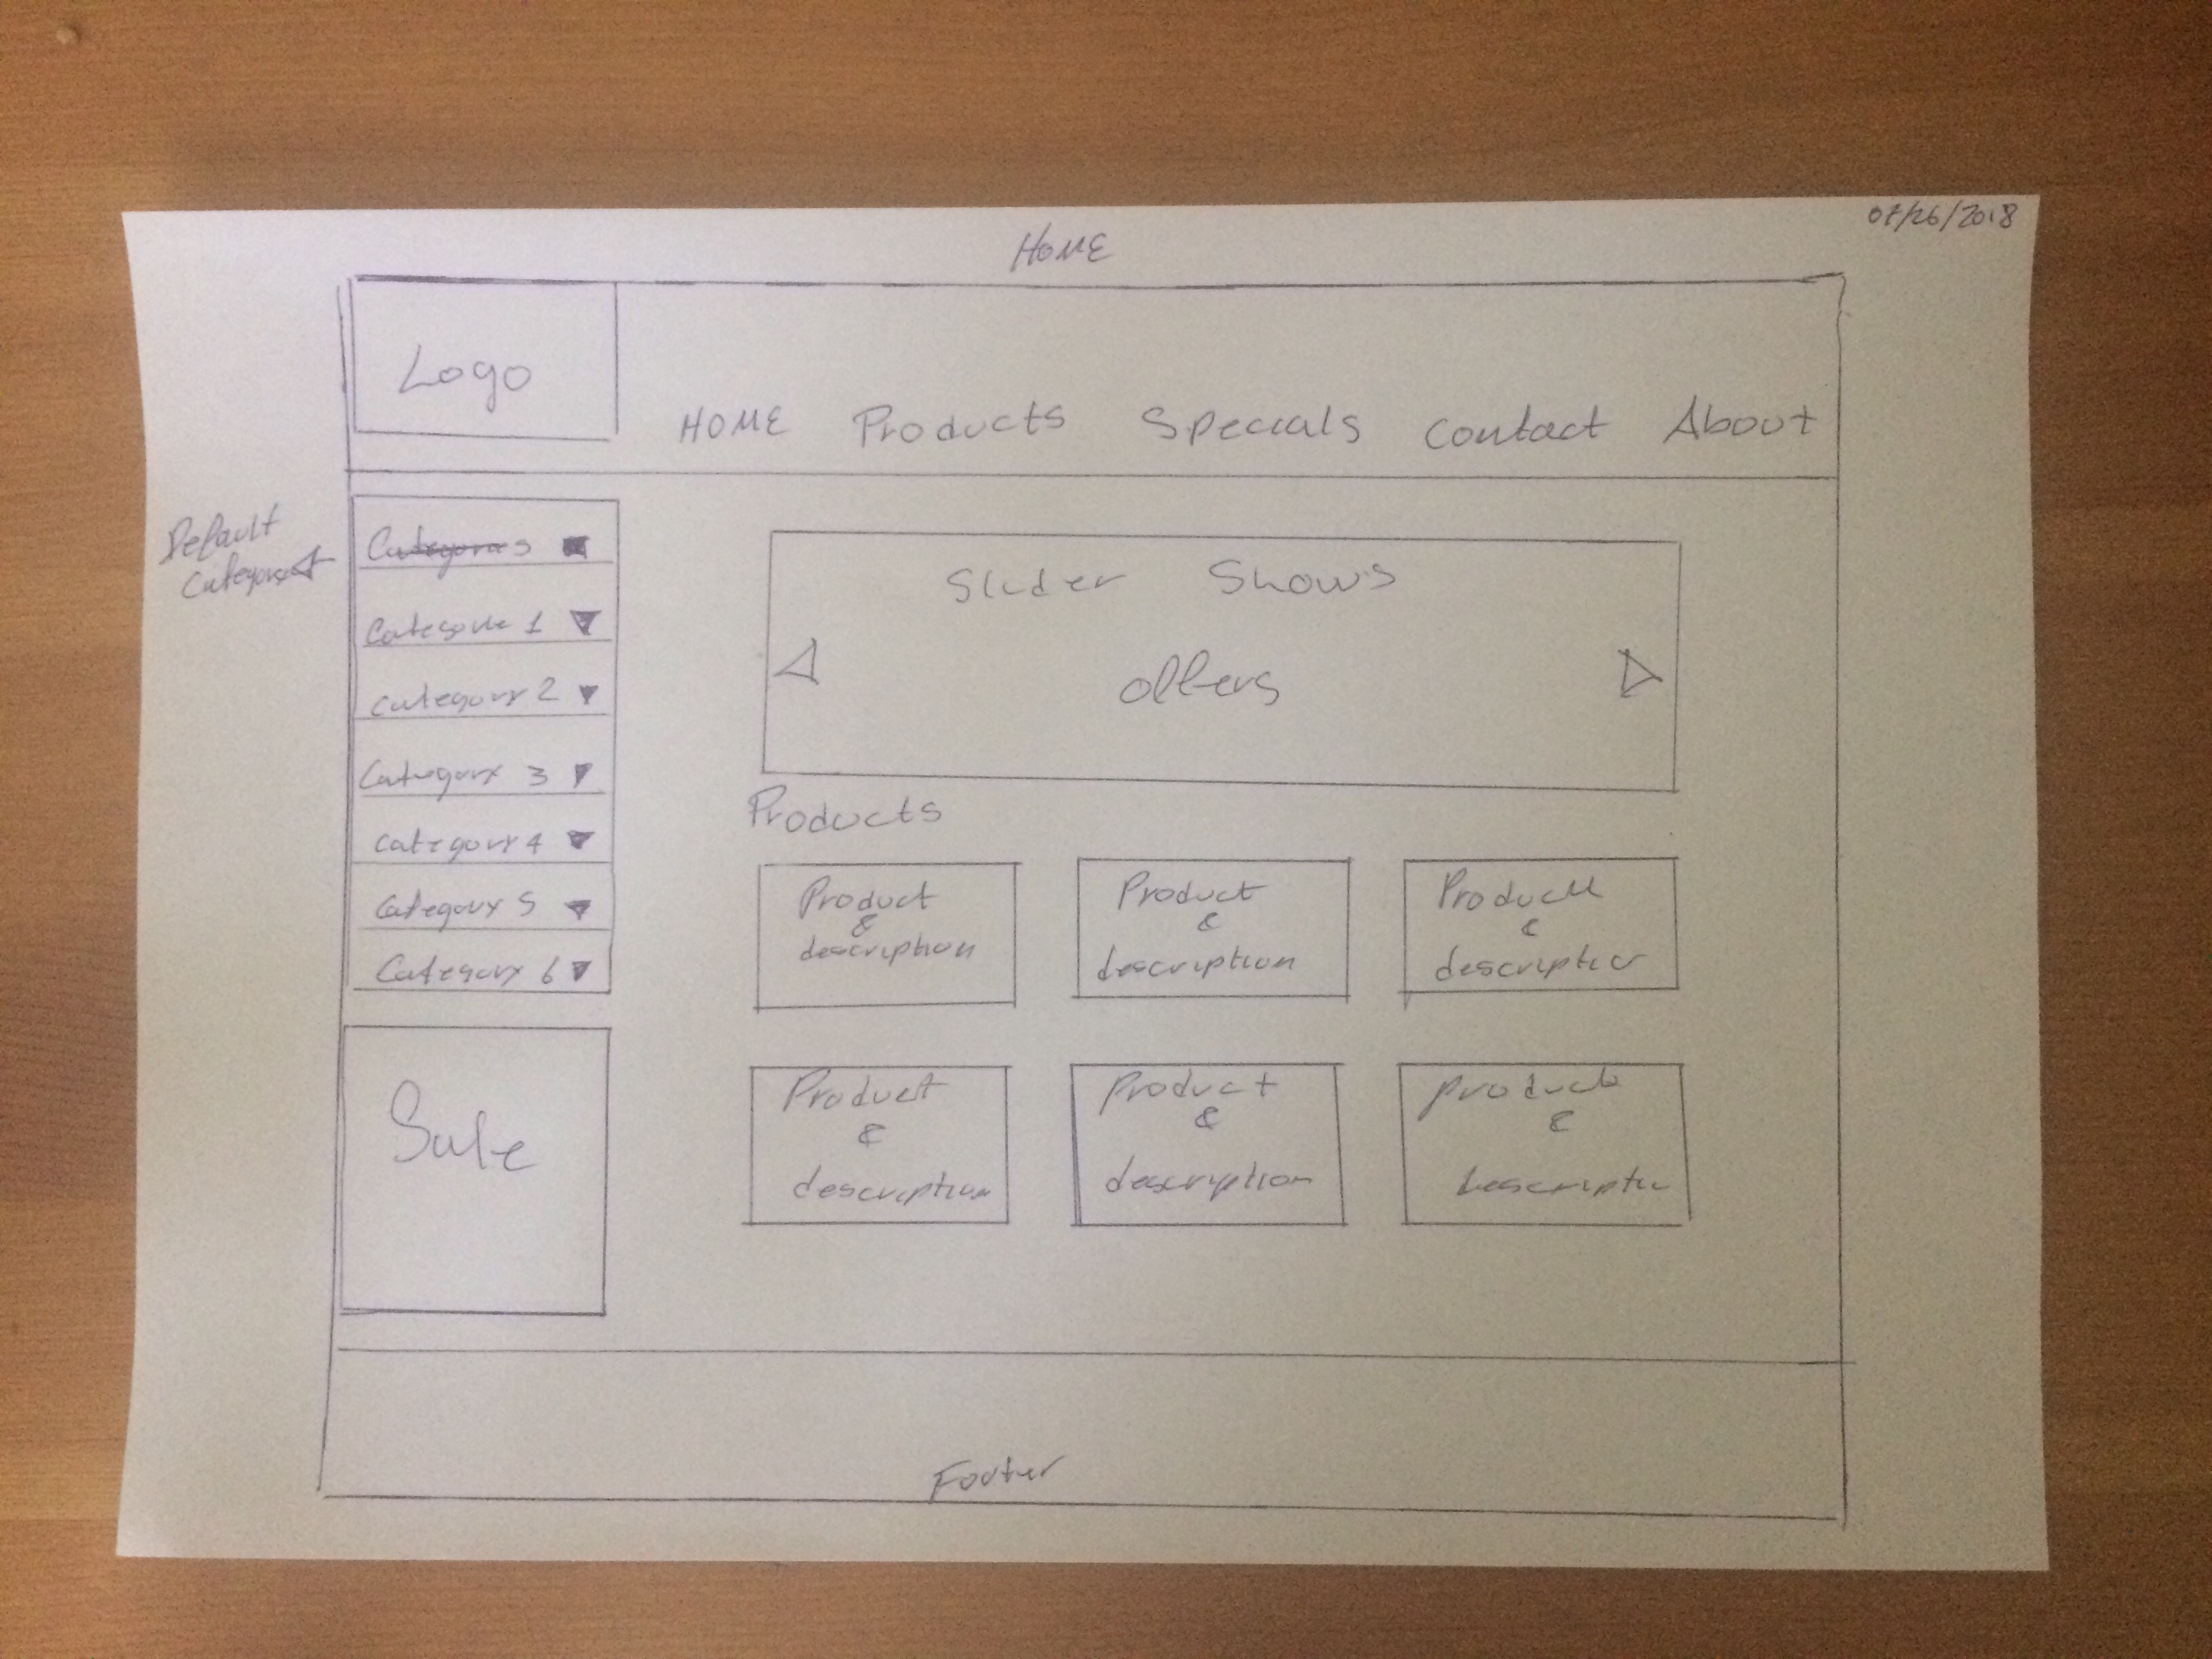 07/26/2018
HOME
Logo
HOME Products Specials Contact About
Default
Category
Categories
Category 1
Category 2
Category 3
Category 4
Category 5
Category 6
Sale
Slider Shows
offers
Products
Product
&
description
Product
&
description
Product
&
description
Product
&
description
Product
&
description
product
&
descriptio
Footer